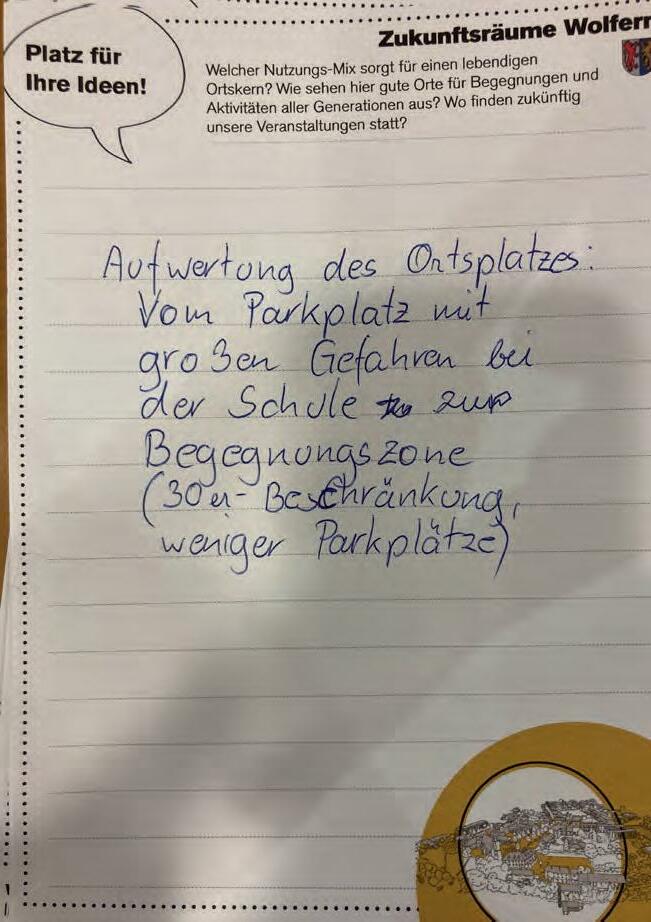 Zukunftsräume Wolfern
Platz für
Ihre Ideen!
Welcher Nutzungs-Mix sorgt für einen lebendigen
Ortskern? Wie sehen hier gute Orte für Begegnungen und
Aktivitäten aller Generationen aus? Wo finden zukünftig
unsere Veranstaltungen statt?
Aufwertung des Ortsplatzes:
Vom Parkplatz mit
großen Gefahren bei
der Schule zur
Begegnungszone
(30er-Beschränkung,
weniger Parkplätze)